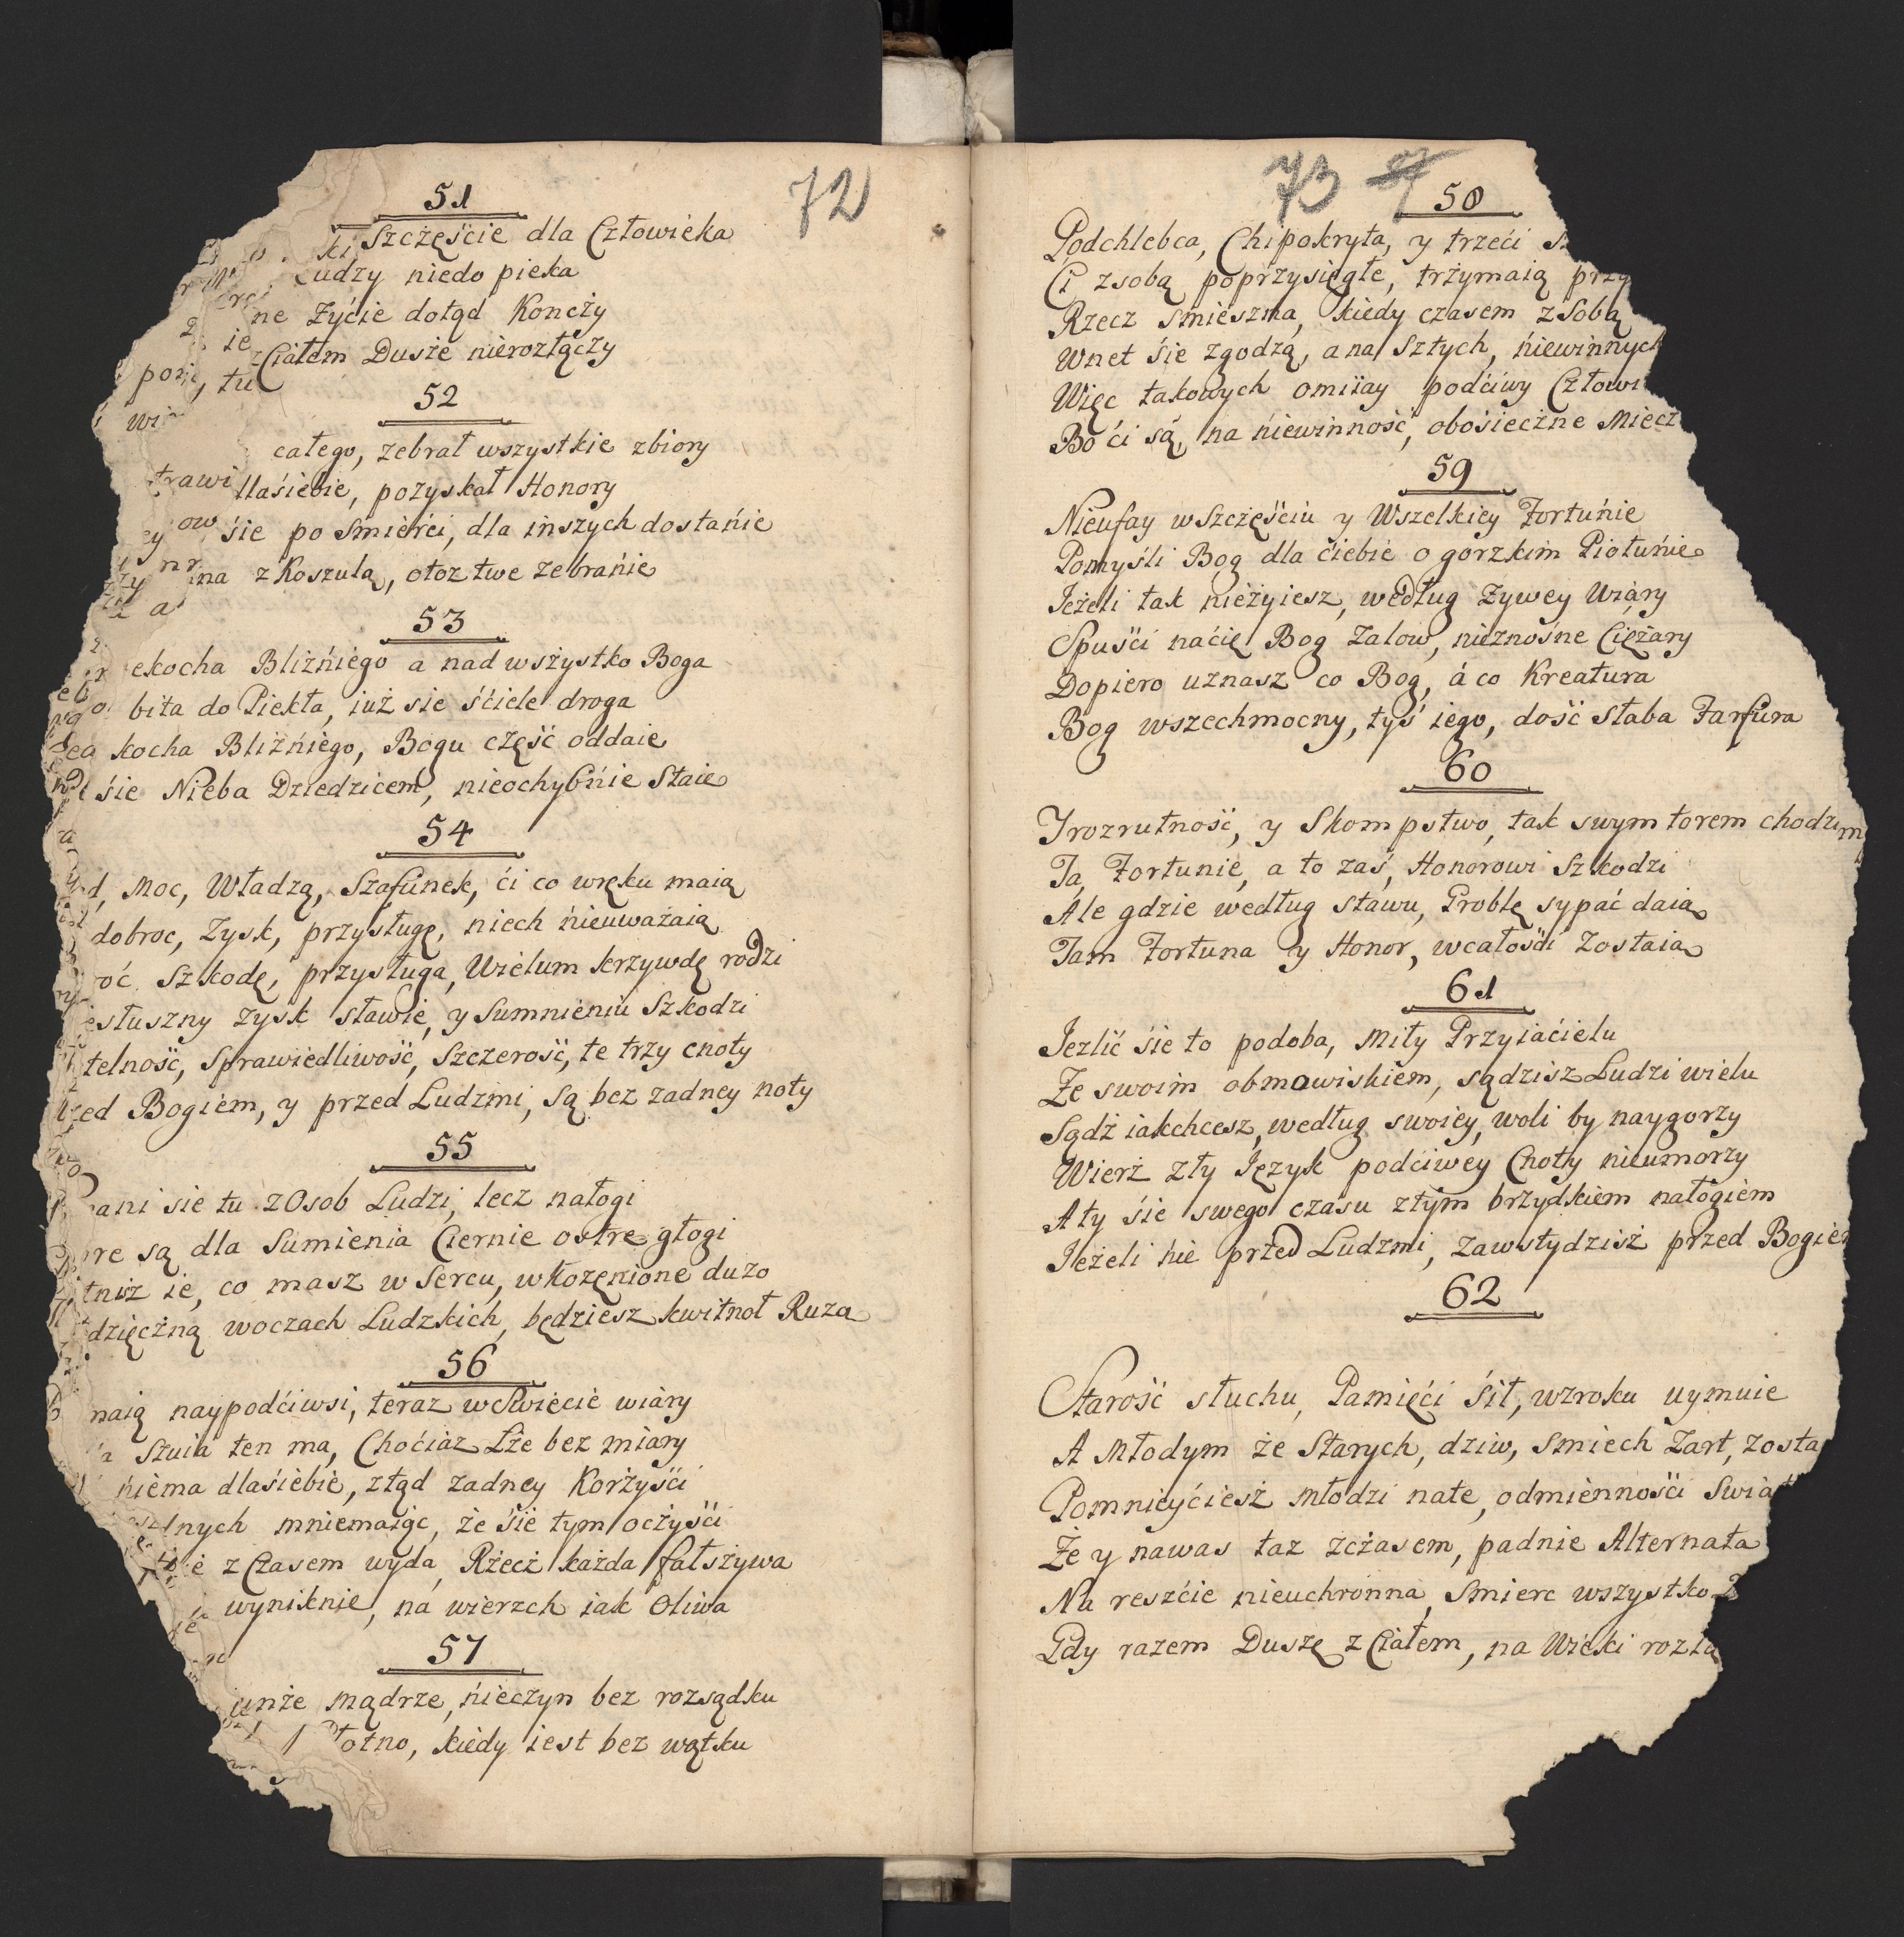 72
51
Szczęście dla Człowieka
udzy niedo pieka
ne Zyćie dotąd Konczy
Ciałem Dusze nierozłączy
52
całego, zebrał wszystkie zbiory
dlaśiebie, pozyskał Honory
śie po Smierći, dla inszych dostańie
z Koszulą, otoz twe zebrańie
53
ekocha Bliźńiego a nad wszystko Boga
bita do Piekła, iuż sie śćiele droga
kocha Bliźńiego, Bogu część oddaie
śie Nieba Dziedzicem, nieochybńie Staie
54
d, Moc, Władzą, Szafunek, ći co wręku maią
dobroc, Zysk, przysługę, niech ńieuważaią
oć Szkodę, przysługa, Wielum krzywdę rodzi
estuszny zysk sławie, y Sumnieniu Szkodzi
telność, Sprawiedliwość, Szczerość, te trzy cnoty
zed Bogiem, y przed Ludzmi, Są bez zadney noty
55
ani sie tu zOsob Ludzi, lecz nałogi
re są dla Sumienia Ciernie ostre głogi
tniż ie, co masz w Sercu, wkorzęnione duzo
dzięczną woczach Ludzkich, będziesz kwitnoł Ruza
56
naią naypodćiwsi, teraz wSwiećie wiáry
Szuia ten ma, Choćiaz Lże bez miary
ńiema dlaśiebie, ztąd zadney Korzyśći
lnych mniemaiąc, że śie tym oczyśći
e z Czasem wyda, Rzecz każda fałszywa
wyniknie, na wierzch iak Oliwa
57
unże mądrze, ńieczyn bez rozsądku
otno, kiedy iest bez wątku
73
58
Podchlebca, Chipokryta, y trzeći
Ci zsobą poprzysięgłe, trzymaią przy
Rzecz smieszna, kiedy czasem zSobą
Wnet śie zgodzą, a na Sztych, ńiewinnych
Więc takowych omiiay podćiwy Człowi
Bo ći są, na ńiewinność, obośieczne Miecz
59
Nieufay wSzczęśćiu y Wszelkiey Fortuńie
Pomyśli Bog dla ćiebie o gorzkim Piołuńie
Ieżeli tak nieżyiesz, według Zywey Wiáry
Spuśći naćię Bog Zalow, nieznośne Ciężary
Dopiero uznasz co Bog, á co Kreatura
Bog wszechmocny, tyś iego, dość Słaba Farfura
60
I rozrutność, y Skompstwo, tak swym torem chodzi
Ta, Fortunie, a to zaś, Honorowi Szkodzi
Ale gdzie według stawu, Groblę sypać daią
Tam Fortuna y Honor, wcałośći Zostaią
61
Iezlić śie to podoba, Miły Przyiaćielu
Ze swoim obmowiskiem, sądzisz Ludzi wielu
Sądź iakchcesz, według swoiey, woli by naygorzy
Wierż zły Ięzyk podciwey Cnoty nieumorzy
A ty śie swego czasu złym brzydkiem nałogiem
Ieżeli nie przed Ludzmi, Zawstydzisż przed Bogiem
62
Starość słuchu, Pamięći śił, wzroku uymuie
A Młodym że Starych, dziw, Smiech Zart, zosta
Pomnieyćiesż młodzi na te, odmiennośći Swia
Że y nawas taz zczasem, padnie Alternata
Na reszćie nieuchronna, Smierc wszystko
Gdy razem Duszę z Ciałem, na Wieki rozłą